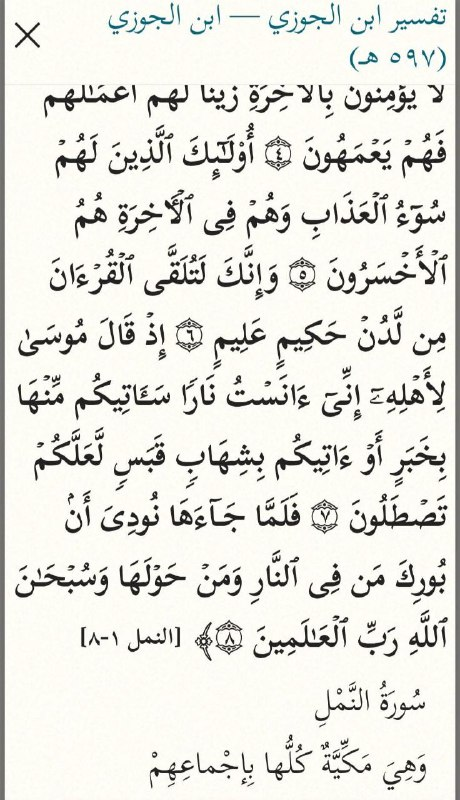 تفسير ابن الجوزي — ابن الجوزي
(٥٩٧ هـ)
لَا يُؤْمِنُونَ بِٱلْـَٔاخِرَةِ زَيَّنَّا لَهُمْ أَعْمَـٰلَهُمْ
فَهُمْ يَعْمَهُونَ ٤ أُو۟لَـٰۤىِٕكَ ٱلَّذِینَ لَهُمْ
سُوۤءُ ٱلْعَذَابِ وَهُمْ فِی ٱلْـَٔاخِرَةِ هُمُ
ٱلْأَخْسَرُونَ ٥ وَإِنَّكَ لَتُلَقَّى ٱلْقُرْءَانَ
مِن لَّدُنْ حَكِیمٍ عَلِیمٍ ٦ إِذْ قَالَ مُوسَىٰ
لِأَهْلِهِۦۤ إِنِّیۤ ءَانَسْتُ نَارًا سَـَٔاتِیكُم مِّنْهَا
بِخَبَرٍ أَوْ ءَاتِیكُم بِشِهَابٍ قَبَسٍ لَّعَلَّكُمْ
تَصْطَلُونَ ٧ فَلَمَّا جَاۤءَهَا نُودِیَ أَنۢ
بُورِكَ مَن فِی ٱلنَّارِ وَمَنْ حَوْلَهَا وَسُبْحَـٰنَ
ٱللَّهِ رَبِّ ٱلْعَـٰلَمِینَ ٨﴾ [النمل ١-٨]
سُورَةُ النَّمْلِ
وَهِيَ مَكِّيَّةٌ كُلُّها بِإجْماعِهِمْ